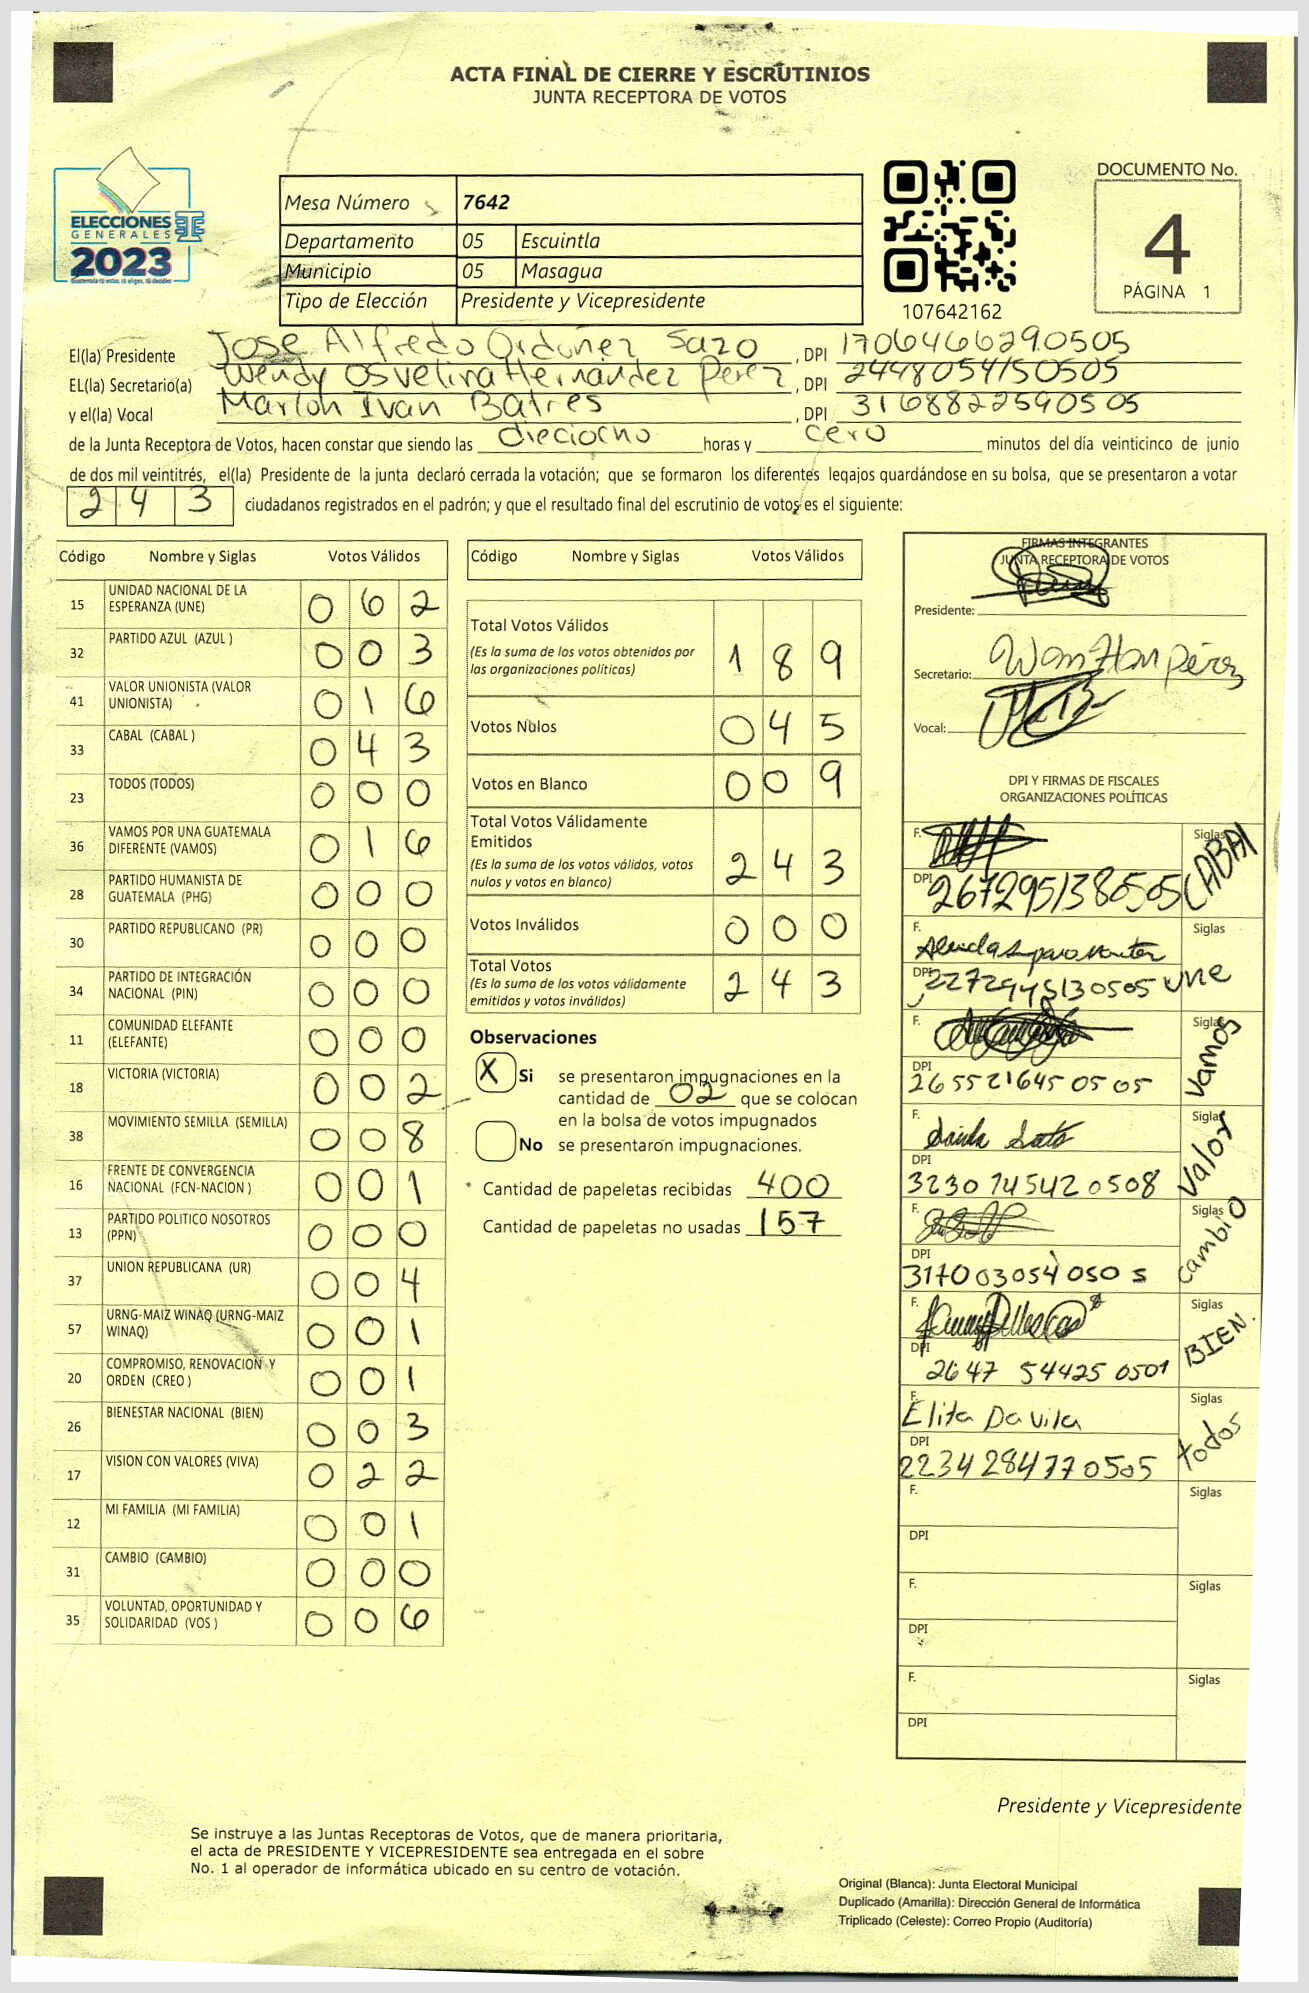 ACTA FINAL DE CIERRE Y ESCRUTINIOS
JUNTA RECEPTORA DE VOTOS
ELECCIONES
GENERALES
2023
Mesa Número 7642
Departamento 05 Escuintla
Municipio 05 Masagua
Tipo de Elección Presidente y Vicepresidente
107642162
DOCUMENTO No.
4
PÁGINA 1
El(la) Presidente Jose Alfredo Ordoñez Sazo, DPI 1706466290505
EL(la) Secretario(a) Wendy Osvelina Hernández Perez, DPI 2448054150505
y el(la) Vocal Marlon Ivan Batres, DPI 3168822590505
de la Junta Receptora de Votos, hacen constar que siendo las dieciocho horas y cero minutos del día veinticinco de junio
de dos mil veintitrés, el(la) Presidente de la junta declaró cerrada la votación; que se formaron los diferentes legajos quardándose en su bolsa, que se presentaron a votar
243 ciudadanos registrados en el padrón; y que el resultado final del escrutinio de votos es el siguiente:
Código Nombre y Siglas Votos Válidos
15 UNIDAD NACIONAL DE LA ESPERANZA (UNE) 062
32 PARTIDO AZUL (AZUL ) 003
41 VALOR UNIONISTA (VALOR UNIONISTA) 016
33 CABAL (CABAL ) 043
23 TODOS (TODOS) 000
36 VAMOS POR UNA GUATEMALA DIFERENTE (VAMOS) 016
28 PARTIDO HUMANISTA DE GUATEMALA (PHG) 000
30 PARTIDO REPUBLICANO (PR) 000
34 PARTIDO DE INTEGRACIÓN NACIONAL (PIN) 000
11 COMUNIDAD ELEFANTE (ELEFANTE) 000
18 VICTORIA (VICTORIA) 002
38 MOVIMIENTO SEMILLA (SEMILLA) 008
16 FRENTE DE CONVERGENCIA NACIONAL (FCN-NACION ) 001
13 PARTIDO POLITICO NOSOTROS (PPN) 000
37 UNION REPUBLICANA (UR) 004
57 URNG-MAIZ WINAQ (URNG-MAIZ WINAQ) 001
20 COMPROMISO, RENOVACION Y ORDEN (CREO ) 001
26 BIENESTAR NACIONAL (BIEN) 003
17 VISION CON VALORES (VIVA) 022
12 MI FAMILIA (MI FAMILIA) 001
31 CAMBIO (CAMBIO) 000
35 VOLUNTAD, OPORTUNIDAD Y SOLIDARIDAD (VOS ) 006
Código Nombre y Siglas Votos Válidos
Total Votos Válidos 189
(Es la suma de los votos obtenidos por
las organizaciones políticas)
Votos Nulos 045
Votos en Blanco 009
Total Votos Válidamente
Emitidos 243
(Es la suma de los votos válidos, votos
nulos y votos en blanco)
Votos Inválidos 000
Total Votos 243
(Es la suma de los votos válidamente
emitidos y votos inválidos)
Observaciones
X Si se presentaron impugnaciones en la
cantidad de 02 que se colocan
en la bolsa de votos impugnados
No se presentaron impugnaciones.
Cantidad de papeletas recibidas 400
Cantidad de papeletas no usadas 157
FIRMAS INTEGRANTES
JUNTA RECEPTORA DE VOTOS
Presidente:
Secretario:
Vocal:
DPI Y FIRMAS DE FISCALES
ORGANIZACIONES POLÍTICAS
F. Siglas CABAL
DPI 2672951380505
F. Siglas UNE
DPI 2272945130505
F. Siglas Vamos
DPI 2655216450505
F. Siglas Valor
DPI 3230745420508
F. Siglas Cambio
DPI 3170030540505
F. Siglas BIEN.
DPI 2647 54425 0501
F. Elita Davila Siglas todos
DPI 2234284770505
F. Siglas
DPI
F. Siglas
DPI
F. Siglas
DPI
Presidente y Vicepresidente
Se instruye a las Juntas Receptoras de Votos, que de manera prioritaria,
el acta de PRESIDENTE Y VICEPRESIDENTE sea entregada en el sobre
No. 1 al operador de informática ubicado en su centro de votación.
Original (Blanca): Junta Electoral Municipal
Duplicado (Amarilla): Dirección General de Informática
Triplicado (Celeste): Correo Propio (Auditoría)